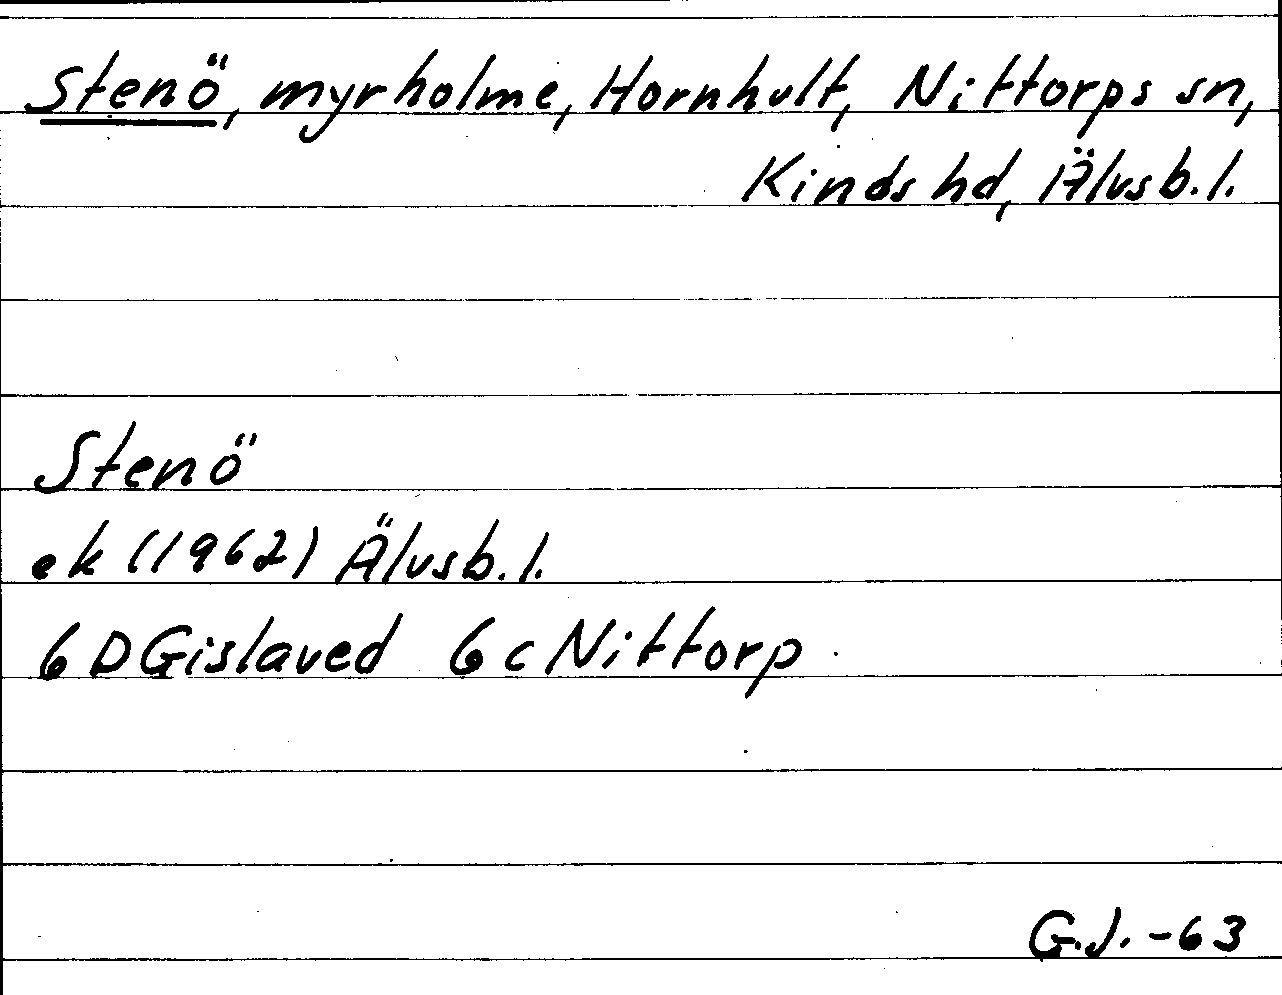 Stenö, myrholme, Hornhult, Nittorps sn,
Kinds hd, Älvsb. l.
Stenö
ek (1962) Älvsb. l.
6 D Gislaved 6 c Nittorp
G.J. -63